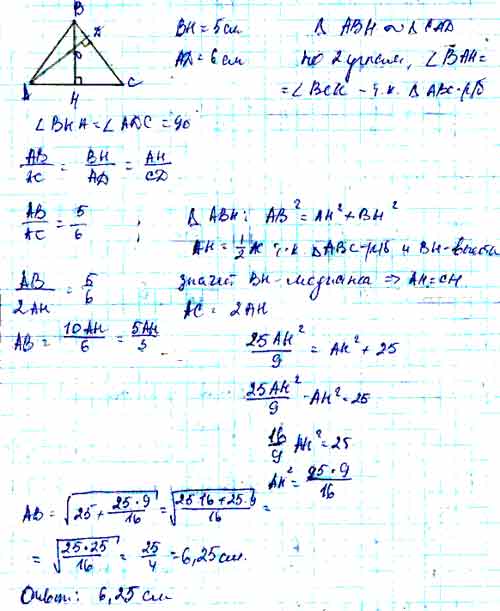 B
D
A
H
C
BH = 5 см
AD = 6 см
Δ ABH ∼ Δ CAD
по 2 углам, ∠BAH =
= ∠BCH - т.к. Δ ABC - р/б
∠BHA = ∠ADC = 90
AB/AC = BH/AD = AH/CD
AB/AC = 5/6 ;
Δ ABH: AB² = AH² + BH²
AH = 1/2 AC т.к. Δ ABC - р/б и BH - высота
значит BH - медиана ⇒ AH = CH
AB/2AH = 5/6
AC = 2AH
AB = 10AH/6 = 5AH/3
25AH²/9 = AH² + 25
25AH²/9 - AH² = 25
16/9 AH² = 25
AH² = 25·9/16
AB = √(25 + 25·9/16) = √((25·16 + 25·9)/16) =
= √(25·25/16) = 25/4 = 6,25 см.
Ответ: 6,25 см